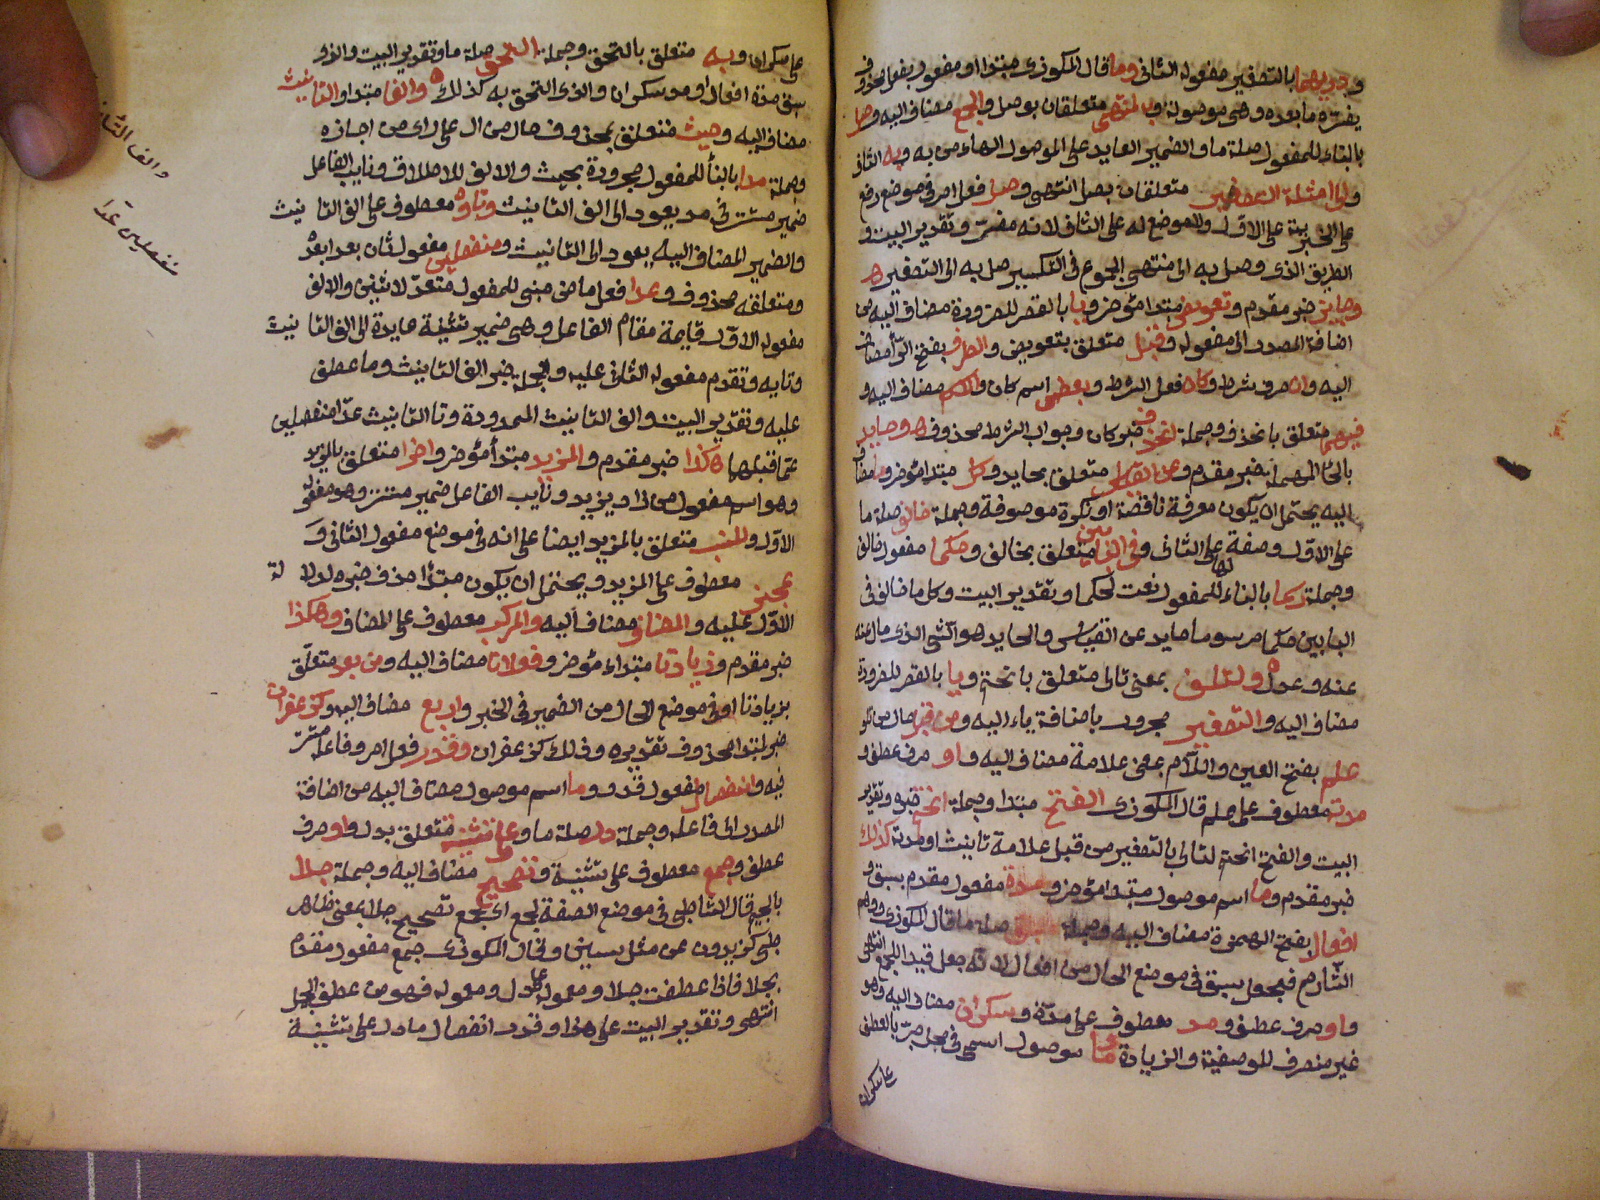 ودريهما بالتصغير مفعوله الثاني وما قال المكودي مبتدا او مفعول بفعل محذوف
يفسره ما بعده وهي موصولة وبه لمنتهى متعلقان بوصل والجمع مضاف اليه وصل
بالبناء للمفعول صلة ما والضمير العايد على الموصول الهاء من به وبه الثاني
والى امثلة التصغير متعلقان بصل انتهى وصل فعل امر في موضع رفع
على الخبرية على الاول ولا موضع له على الثاني لانه مفسر وتقدير البيت و
الطريق الذي وصل به الى منتهى الجموع في التكسير صل به الى التصغير
وجايز خبر مقدم وتعويض مبتدا مؤخر ويا بالقصر للضرورة مضاف اليه من
اضافة المصدر الى مفعوله وقبل متعلق بتعويض والطرف بفتح الراء مضاف
اليه وان حرف شرط وكان فعل الشرط وبعض اسم كان والاسم مضاف اليه و
فيهما متعلق بانحذف وجملة انحذف خبر كان وجواب الشرط محذوف وحايد
بالحاء المهملة خبر مقدم وعن القياس متعلق بحايد وكل مبتدا مؤخر وما مضاف
اليه يحتمل ان يكون معرفة ناقصة او نكرة موصوفة وجملة خالف صلة ما
على الاول وصفة لها على الثاني وفي البابين متعلق بخالف وحكما مفعول خالف
وجملة رسما بالبناء للمفعول نعت لحكما وتقدير البيت وكل ما خالف في
البابين حكما مرسوما حايد عن القياس والحايد هو الشي الذي مال عنه
عنه وعدل ولتلو بمعنى تالى متعلق بانحتم ويا بالقصر للضرورة
مضاف اليه والتصغير مجرور باضافة ياء اليه ومن قبل حال من تلو
علم بفتح العين واللام بمعنى علامة مضاف اليه واو حرف عطف و
مدته معطوف على علم قال المكودي الفتح مبتدا وجملة انحتم خبره وتقدير
البيت والفتح انحتم لتالى يا التصغير من قبل علامة تانيث او مدته كذاك
خبر مقدم وما اسم موصول مبتدا مؤخر ومدة مفعول مقدم بسبق و
افعال بفتح الهمزة مضاف اليه وجملة سبق صلة ما قال المكودي ووهم
الشارح فجعل سبق في موضع الحال من افعال لانه جعل قيد الجمع انتهى
واو حرف عطف ومد معطوف على مدة وسكران مضاف اليه وهو
غير منصرف للوصفية والزيادة وما موصول اسمي في محل جر بالعطف
على سكران
على سكران وبه متعلق بالتحق وجملة التحق صلة ما وتقدير البيت والذي
سبق مدة افعال او مد سكران والذي التحق به كذلك والف مبتدا والتانيث
مضاف اليه وحيث متعلق بمحذوف حال من ال على راى من اجازه
وجملة مدا بالبناء للمفعول مجرورة بحيث والالف للاطلاق ونايب الفاعل
ضمير مستتر في مد يعود الى الف التانيث وتاوه معطوف على الف التانيث
والضمير المضاف اليه يعود الى التانيث ومنفصلين مفعول ثان بعد ابعده
ومتعلقه محذوف وعدا فعل ماض مبني للمفعول متعد لاثنين والالف
مفعوله الاول قايمة مقام الفاعل وهي ضمير تثنية عايدة الى الف التانيث
وتايه وتقدم مفعوله الثاني عليه والجملة خبر الف التانيث وما عطف
عليه وتقدير البيت والف التانيث الممدودة وتا التانيث عدا منفصلين
عما قبلهما كذا خبر مقدم والمزيد مبتدأ مؤخر واخرا متعلق بالمزيد
وهو اسم مفعول من زاد يزيد ونايب الفاعل ضمير مستتر وهو مفعوله
الاول وللنسب متعلق بالمزيد ايضا على انه في موضع مفعوله الثاني و
عجز معطوف على المزيد ويحتمل ان يكون مبتدا حذف خبره لدلالة
الاول عليه والمضاف مضاف اليه والمركب معطوف على المضاف وهكذا
خبر مقدم وزيادتا مبتداء مؤخر وفعلانا مضاف اليه ومن بعد متعلق
بزيادتا او في موضع الحال من الضمير في الخبر واربع مضاف اليه وكزعفران
خبر لمبتدا محذوف تقديره وذلك كزعفران وقدر فعل امر وفاعله مستتر
فيه وانفصال مفعول قدر وما اسم موصول مضاف اليه من اضافة
المصدر الى فاعله وجملة دل صلة ما وعلى تثنية متعلق بدل واو حرف
عطف وجمع معطوف على تثنية وتصحيح مضاف اليه وجملة جلا
بالجيم قال الشاطبي في موضع الصفة لجمع اي جمع تصحيح جلا بمعنى ظاهر
جلي كزيدون عن مثل سنين وقال المكودي جمع مفعول مقدم
بجلا فاذا عطفت جلا ومعموله على دل ومعموله فهو من عطف الجمل
انتهى وتقدير البيت على هذا وقدر انفصال ما دل على تثنية
والف التانيث
منفصلين عدا